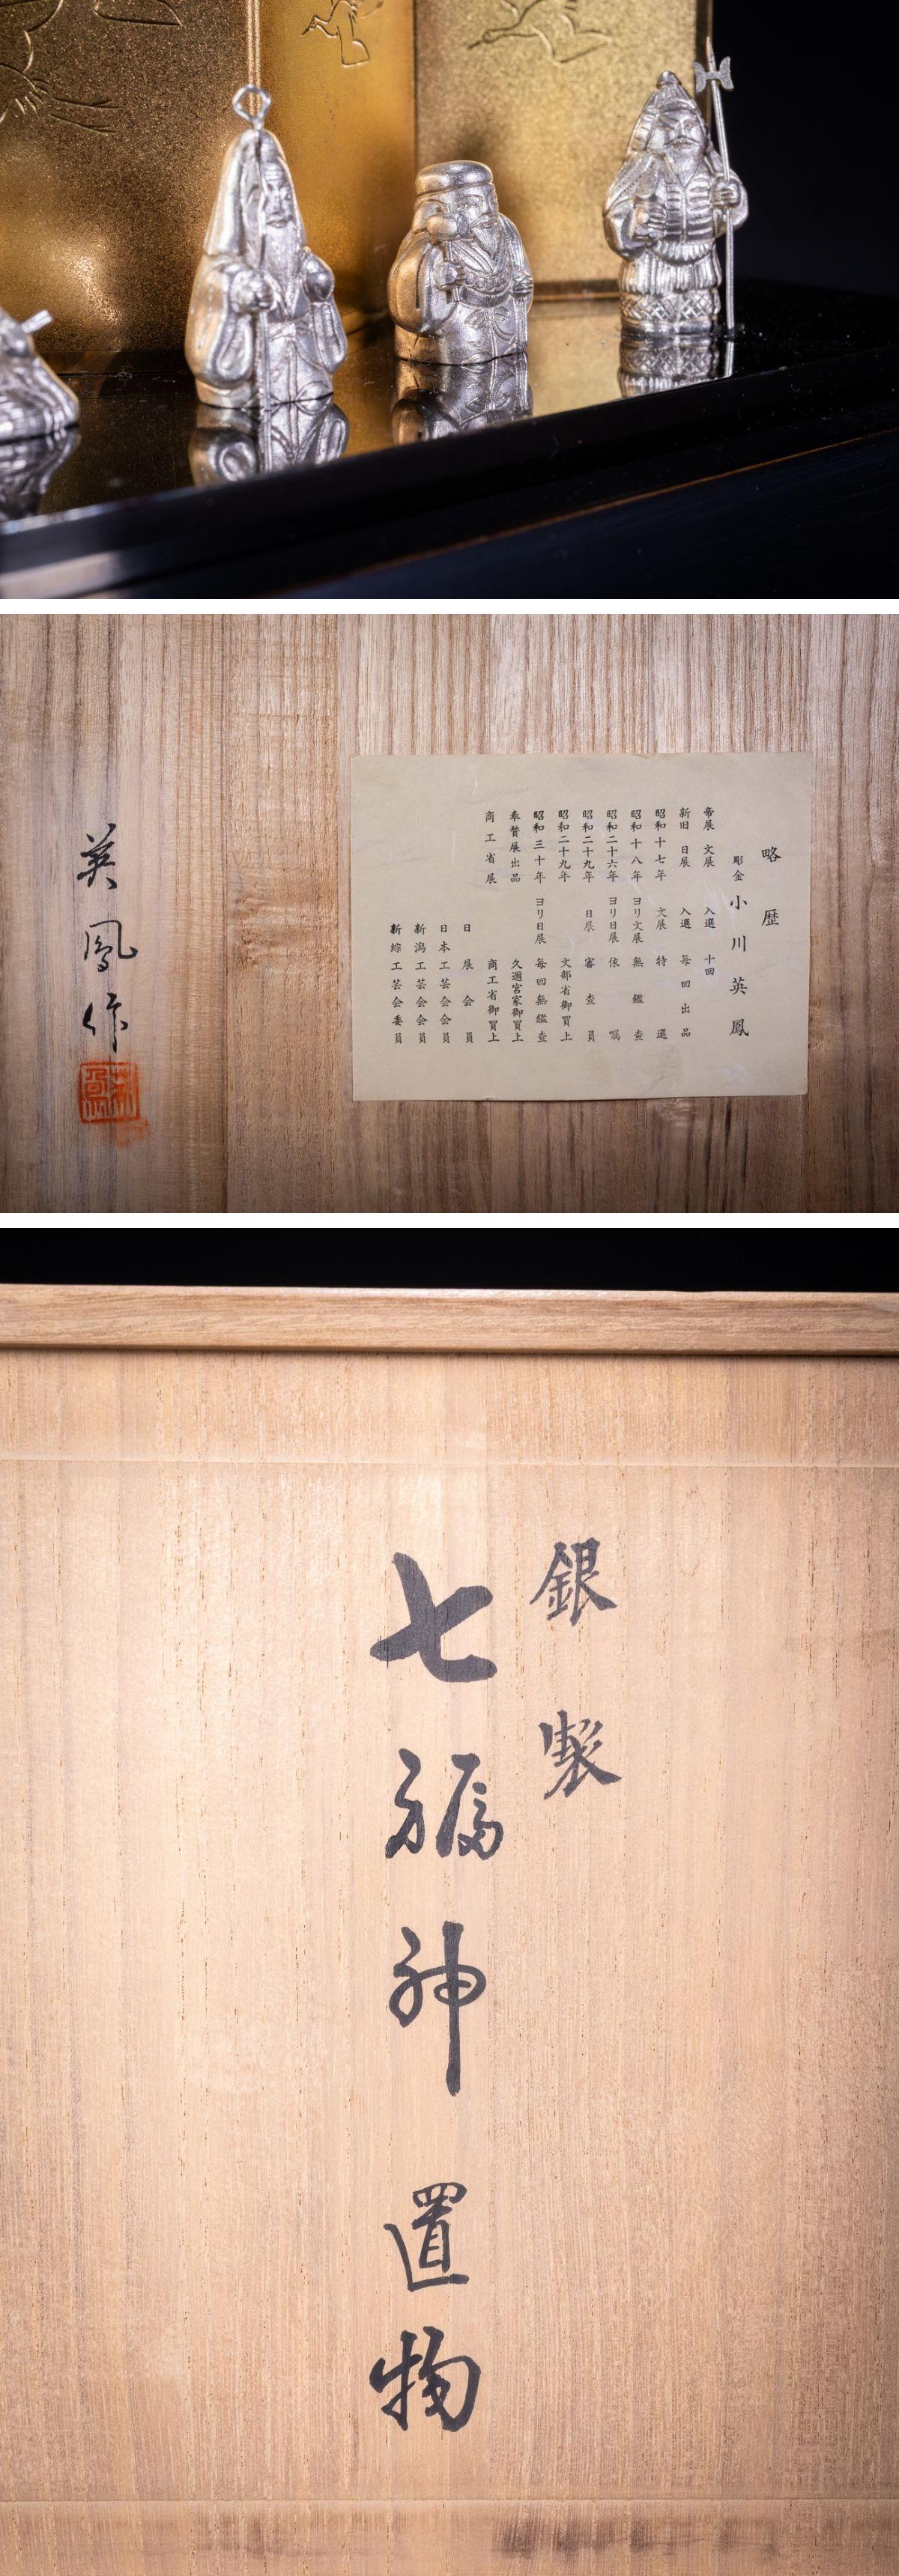 略歴
彫金 小川英鳳
帝展 文展 入選 十回
新旧 日展 入選 毎回出品
昭和十七年 文展 特選
昭和十八年 ヨリ文展 無鑑査
昭和二十六年 ヨリ日展 依嘱
昭和二十九年 日展 審査員
昭和二十九年 文部省御買上
昭和三十年 ヨリ日展 毎回無鑑査
奉賛展出品 久邇宮家御買上
商工省展 商工省御買上
日展会員
日本工芸会会員
新潟工芸会会員
新綜工芸会委員
英鳳作
銀製
七福神置物